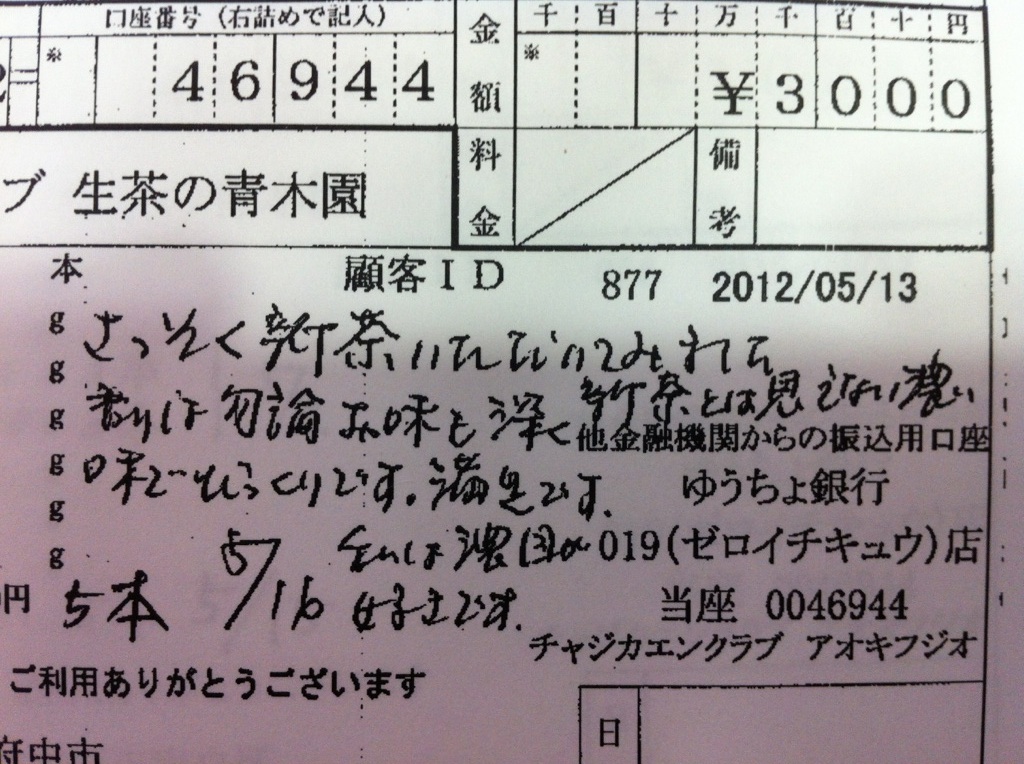 口座番号（右詰めで記入）
金額
千 百 十 万 千 百 十 円
2= ※ 46944
※ ¥3000
料金
備考
ブ 生茶の青木園
本 顧客ID 877 2012/05/13
g
g
g
g
g
g
さっそく新茶いただいてみました
香りは勿論お味も深く新茶とは思えない濃い
味でびっくりです。満足です。
5/16
私は濃い目が
好きです。
5本
円
他金融機関からの振込用口座
ゆうちょ銀行
019(ゼロイチキュウ)店
当座 0046944
チャジカエンクラブ アオキフジオ
ご利用ありがとうございます
府中市
日